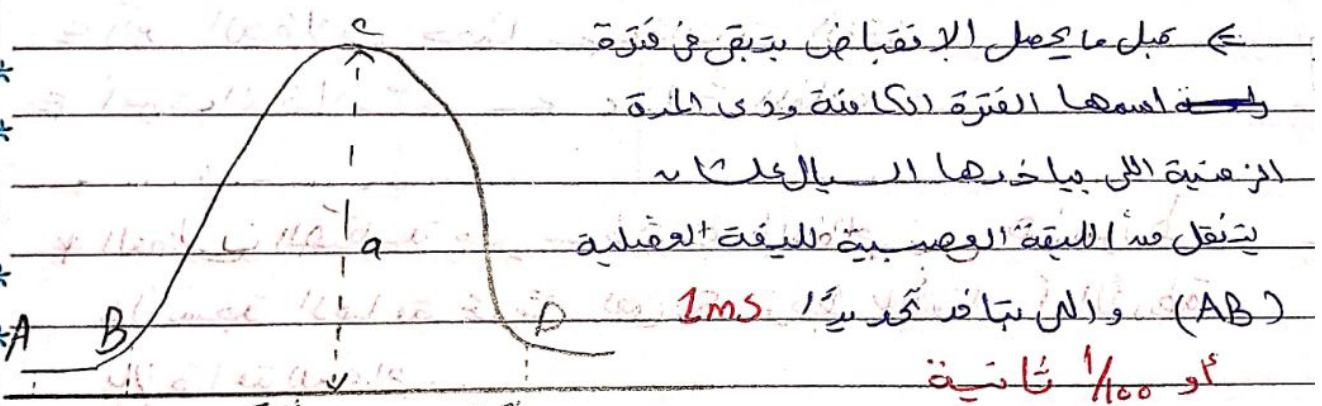 C
⇐ قبل ما يحصل الانقباض بتبقى في فترة
اسمها الفترة الكامنة ودى المدة
الزمنية اللى بياخدها السيال علشان
يتنقل من الليفة العصبية لليفة العضلية
a
(AB) واللى بتاخد تحديدًا 1ms
A B D
أو 1/100 ثانية